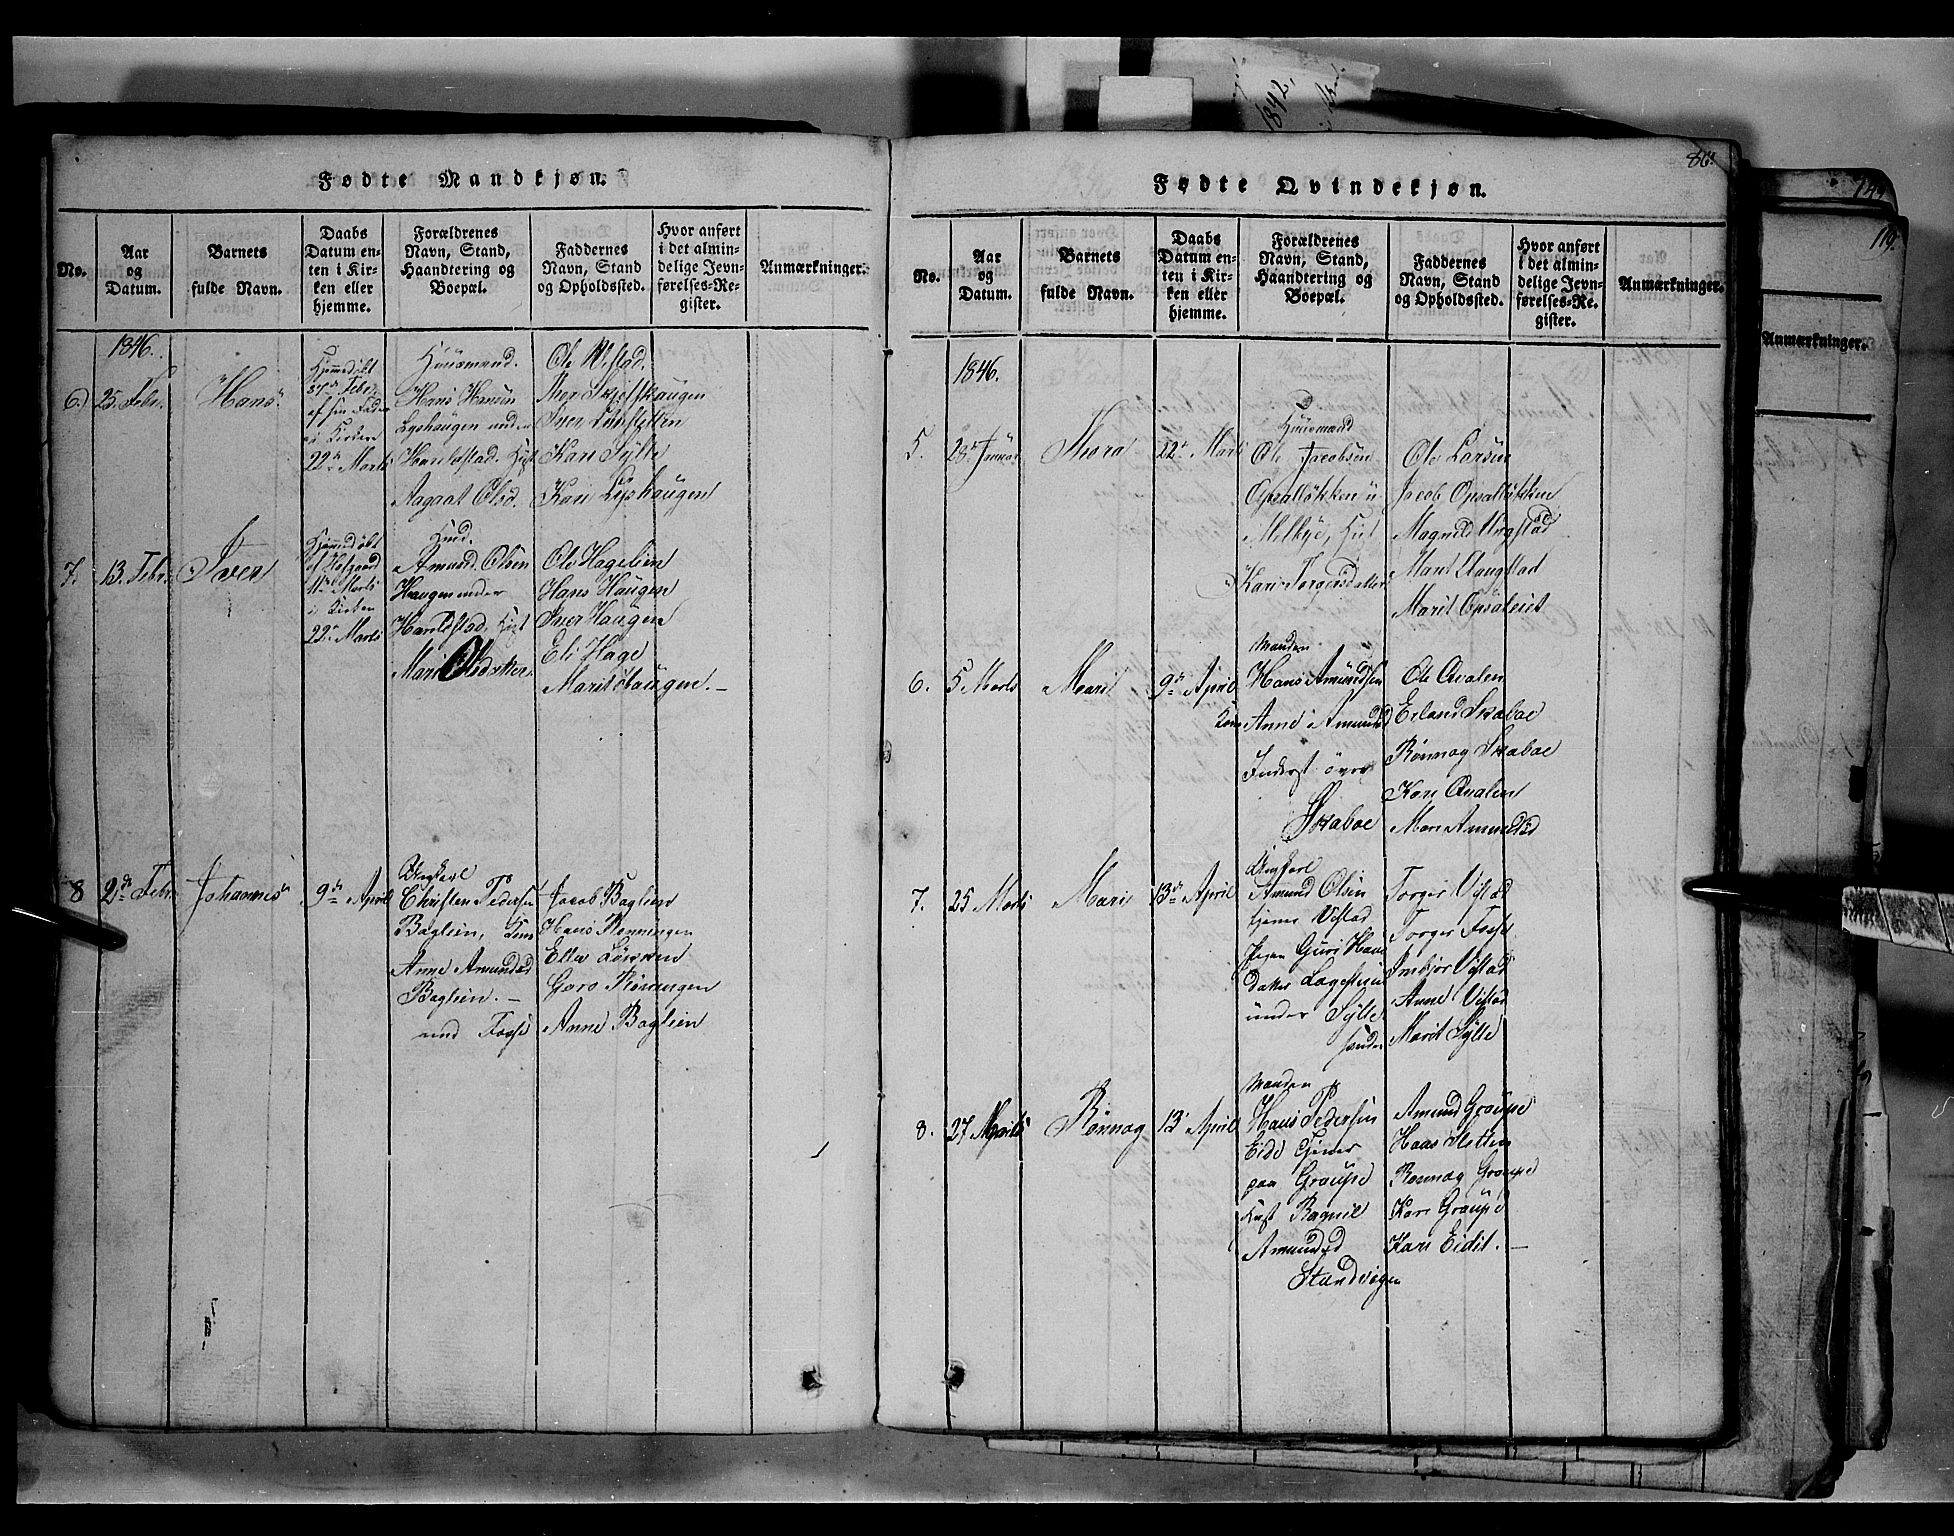 Fødte Mandkjøn.
No.
Aar
og
Datum.
Barnets
fulde Navn.
Daabs
Datum en-
ten i Kir-
ken eller
hjemme.
Forældrenes
Navn, Stand,
Haandtering og
Boepæl.
Faddernes
Navn, Stand
og Opholdssted.
Hvor anført
i det almin-
delige Jevn-
førelses-Re-
gister.
Anmærkninger.
1846.
6)
25. Febr.
Hans
Hjemmedøbt
27de Febr.
af sin Fader
i Kirken
22de Marts
Huusmand.
Hans Hansen
Lyshaugen under
Haraldstad. Hust
Aagaat Olsd.
Ole Vistad.
Iver Skjefshaugen
Iver
Kari Sylte
Kari Lyshaugen
7.
13. Febr.
Iver
Hjemmedøbt
af
Marts
i Kirken
22de Marts
Husd.
Amund Olsen
Haugen under
Haraldstad. Hust
Mari Olsdatter
Ole Hagelien
Hans Haugen
Iver Haugen
Eli Hage
Marit Haugen.
8
2de Febr.
Johannes
9de April
Ungkarl
Christen Pedersen
Baglien, Kone
Anne Amundsd
Baglien.
und Fosse
Jacob Baglien
Hans Rønningen
Ellen
Goro Rønningen
Anne Baglien
86.
Fødte Qvindekjøn.
No.
Aar
og
Datum.
Barnets
fulde Navn.
Daabs
Datum en-
ten i Kir-
ken eller
hjemme.
Forældrenes
Navn, Stand,
Haandtering og
Boepæl.
Faddernes
Navn, Stand
og Opholdssted.
Hvor anført
i det almin-
delige Jevn-
førelses-Re-
gister.
Anmærkninger.
1846.
5.
28de Januar
Thora
22de Marts
Huusmand
Ole Jacobsen
Opsalløkken u
Melbye, Hust
Kari Torgersdatter
Ole Larsen
Jacob Opsalløkken
Magnild Ringstad
Marit Aangstad
Marit Opsaleiet
6.
5 Marts
Marit
9de April
Manden
Hans Amundsen
Kone Anne Amundsd
Inderst øvre
Skaboe
Ole Qvalen
Erland Skaboe
Rønnog Skaboe
Kari Qvalen
Mari Amundsd
7.
25 Marts
Mari
13de April
Ungkarl
Amund Olsen
tjener Vistad
Pigen Guri Hans
datter
under Sylte
søndre
Torger Vistad
Torger Fosse
Imbjør Vistad
Anne Vistad
Marit Sylte
8.
27 Marts
Rønnog
13de April
Manden
Hans Pedersen
Eide Tjener
paa Graupe
Hust Ragnil
Amundsd
Standvogen
Amund Graupe
Hans Sletten
Rønnog Graupe
Kari Graupe
Kari Eidet.
1842,
149
119.
Anmærkninger.